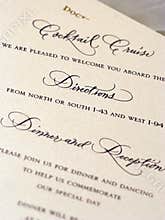 Cocktail Cruise
WE ARE PLEASED TO WELCOME YOU ABOARD THE
Directions
FROM NORTH OR SOUTH I-43 AND WEST I-94
Dinner and Reception
PLEASE JOIN US FOR DINNER AND DANCING
TO HELP US COMMEMORATE
OUR SPECIAL DAY
DINNER WILL